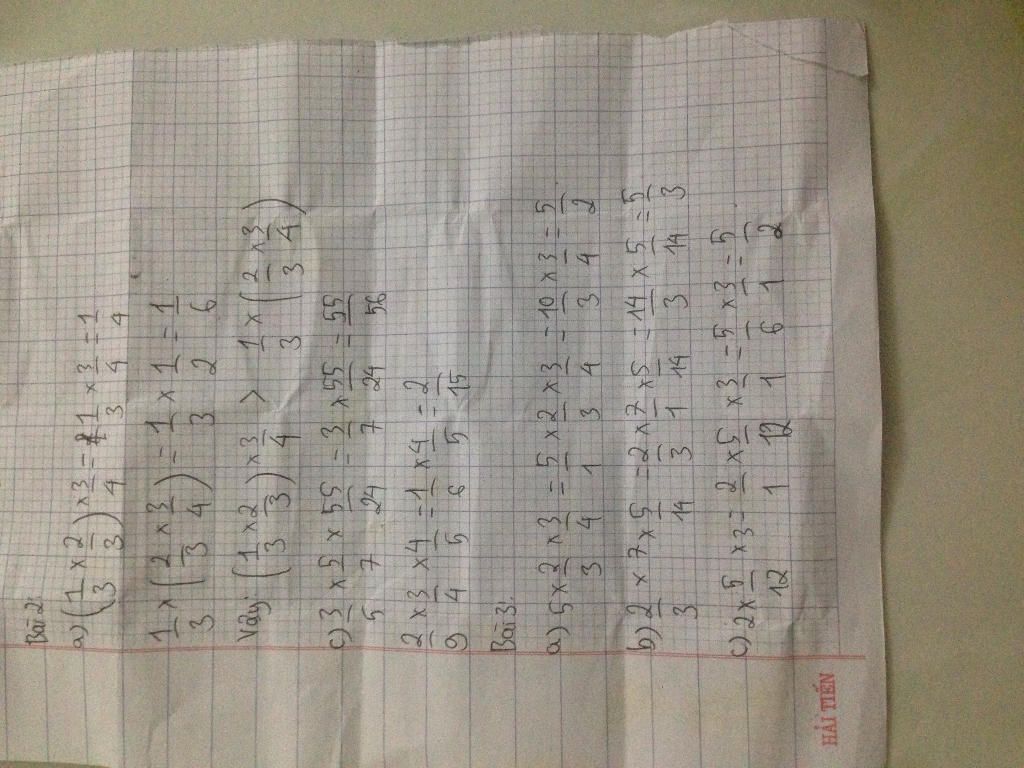 Bài 2:
a) (1/3 x 2/3) x 3/4 = 1/3 x 3/4 = 1/4
1/3 x (2/3 x 3/4) = 1/3 x 1/2 = 1/6
Vậy: (1/3 x 2/3) x 3/4 > 1/3 x (2/3 x 3/4)
c) 3/5 x 5/7 x 55/24 = 3/7 x 55/24 = 55/56
2/9 x 3/4 x 4/5 = 1/6 x 4/5 = 2/15
Bài 3:
a) 5 x 2/3 x 3/4 = 5/1 x 2/3 x 3/4 = 10/3 x 3/4 = 5/2
b) 2/3 x 7 x 5/14 = 2/3 x 7/1 x 5/14 = 14/3 x 5/14 = 5/3
c) 2 x 5/12 x 3 = 2/1 x 5/12 x 3/1 = 5/6 x 3/1 = 5/2
HẢI TIẾN